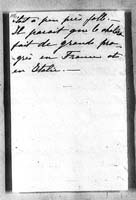 tout à peu près folle. —
Il parait que le choléra
fait de grands pro-
grès en France et
en Italie. —